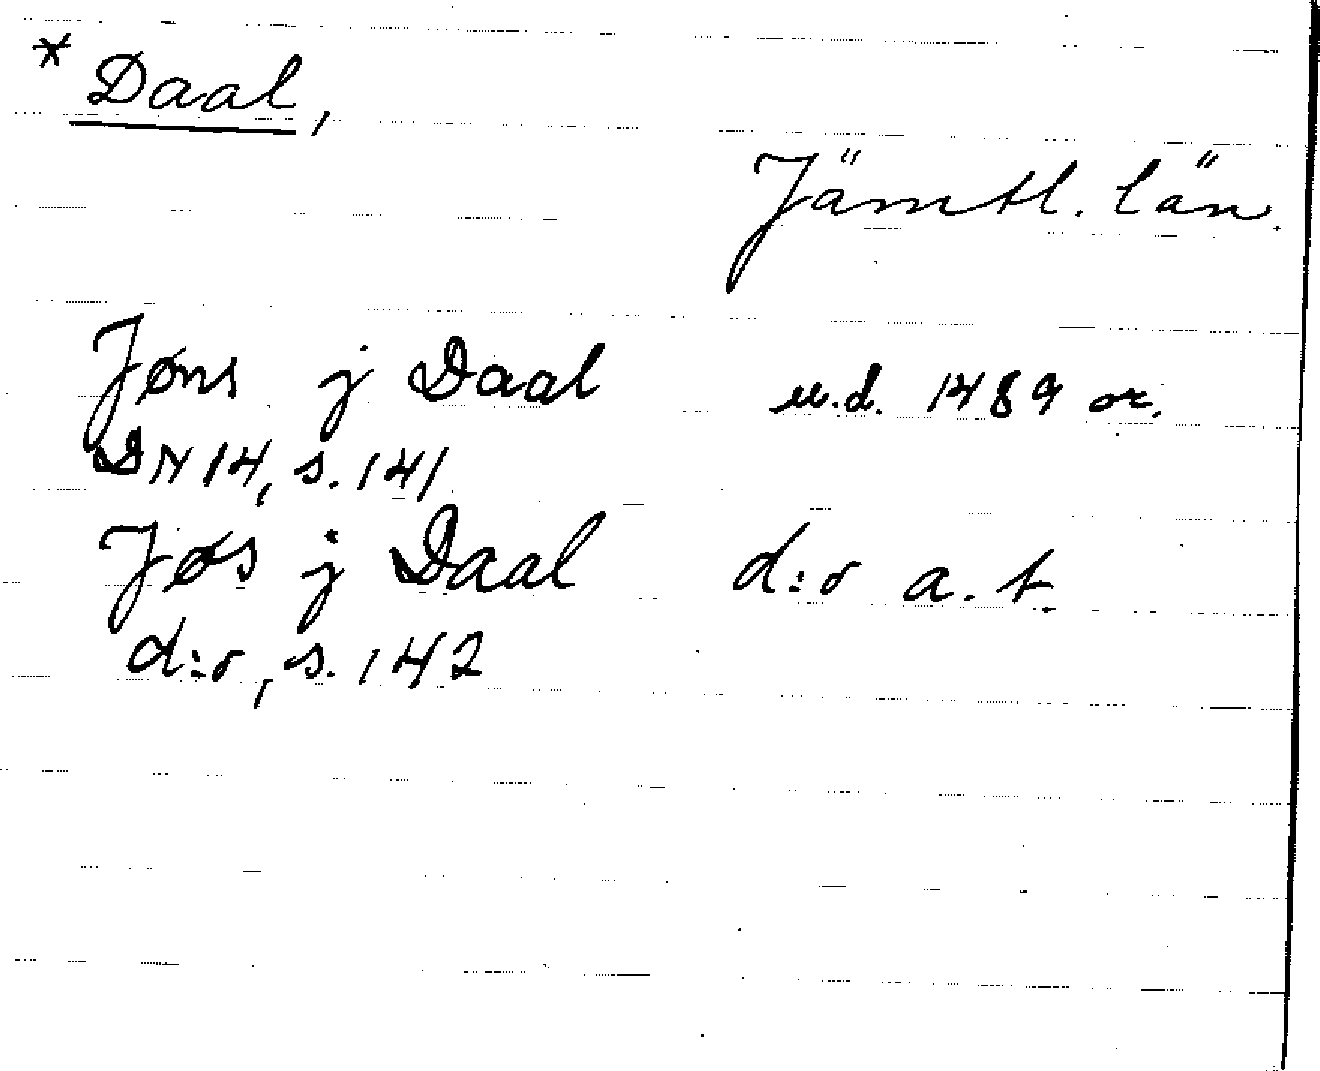 * Daal,
Jämtl. län.
Jøns j Daal u.d. 1489 or.
DN 14, s. 141
Jøs j Daal d:o a. t.
d:o, s. 142